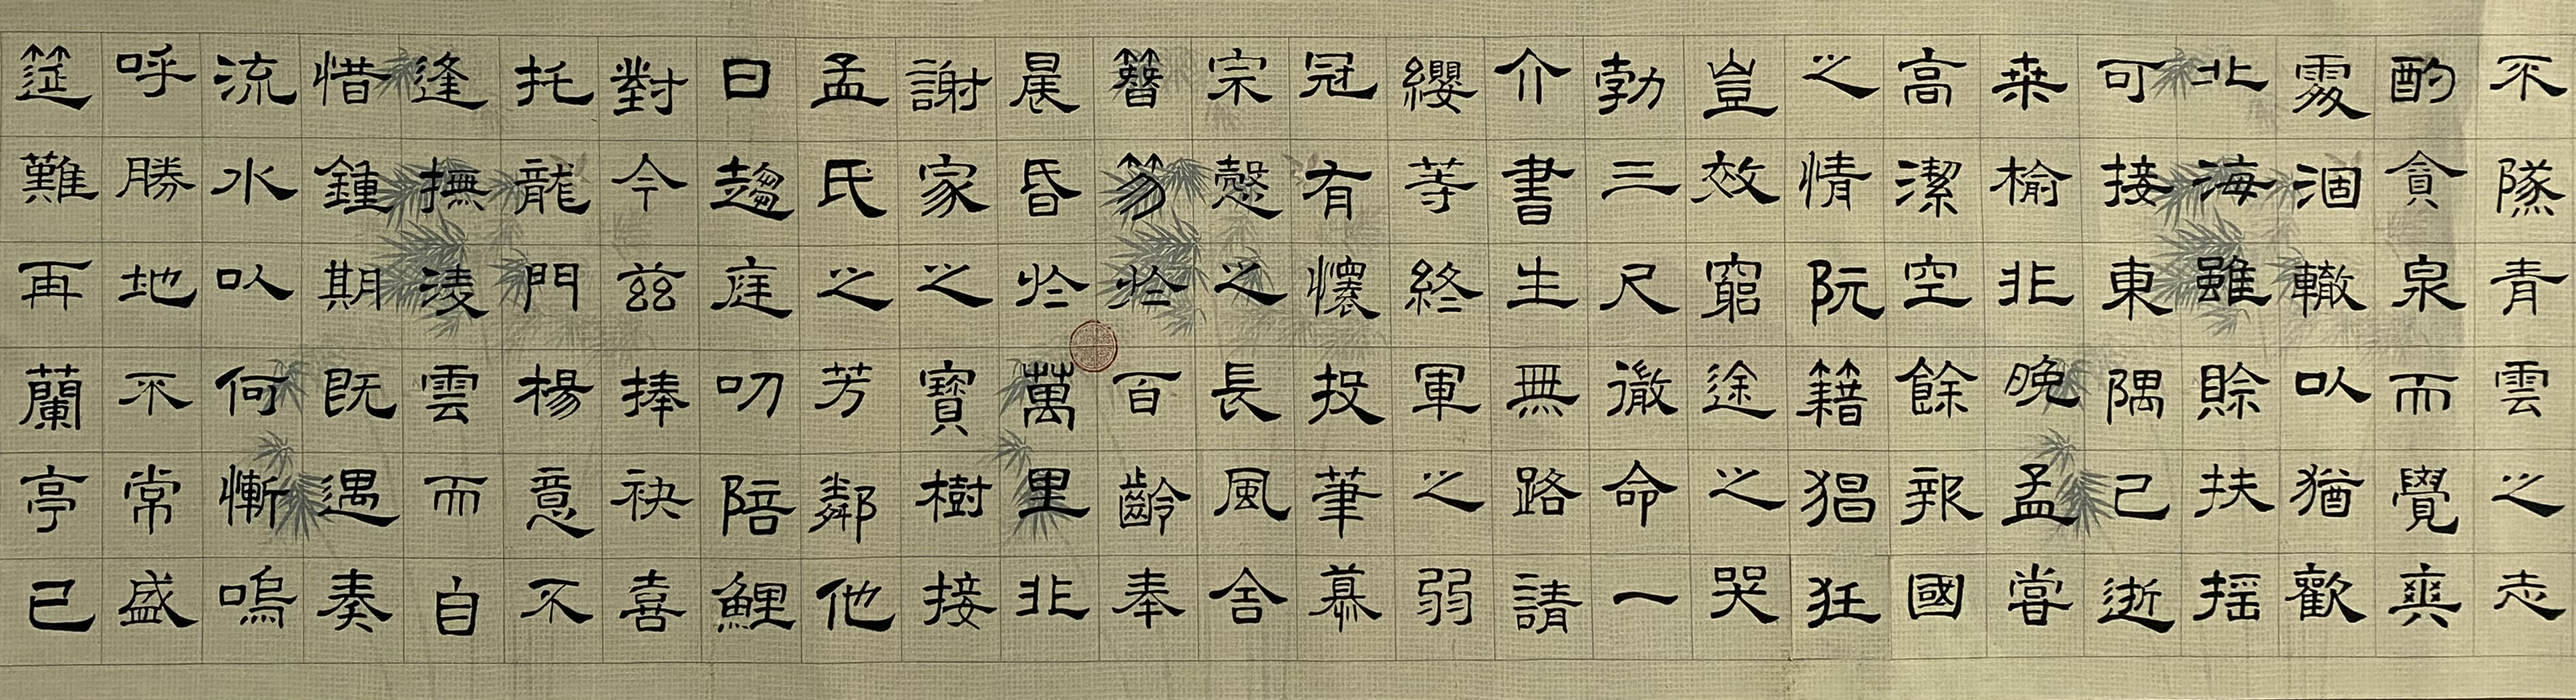 不隊青雲之志
酌貪泉而覺爽
處涸轍以猶歡
北海雖賒扶搖
可接東隅已逝
桒榆非晚孟嘗
高潔空餘報國
之情阮籍猖狂
豈效窮途之哭
勃三尺微命一
介書生無路請
纓等終軍之弱
冠有懷投筆慕
宗慤之長風舍
簪笏於百齡奉
晨昏於萬里非
謝家之寶樹接
孟氏之芳鄰他
日趨庭叨陪鯉
對今茲捧袂喜
托龍門楊意不
逢撫淩雲而自
惜鍾期既遇奏
流水以何慚嗚
呼勝地不常盛
筵難再蘭亭已